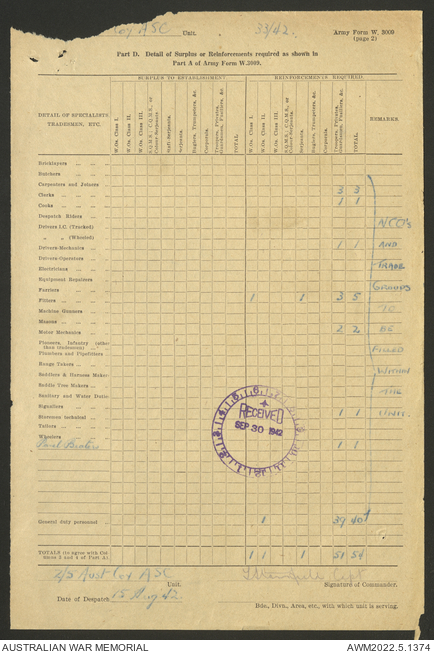 Coy ASC Unit. 33/42. Army Form W. 3009
(page 2)
Part D. Detail of Surplus or Reinforcements required as shown in
Part A of Army Form W.3009.
SURPLUS TO ESTABLISHMENT. REINFORCEMENTS REQUIRED.
DETAIL OF SPECIALISTS, TRADESMEN, ETC. W.Os. Class I. W.Os. Class II. W.Os. Class III. S.Q.M.S., C.Q.M.S., or Colour-Serjeants. Staff-Serjeants. Serjeants. Buglers, Trumpeters, &c. Corporals. TOTAL. W.Os. Class I. W.Os. Class II. W.Os. Class III. Serjeants. Buglers, Trumpeters, &c. Corporals. TOTAL. REMARKS.
Bricklayers
Butchers
Carpenters and Joiners
Clerks 3 3
Cooks 1 1
Despatch Riders NCO's
Drivers I.C. (Tracked)
" " (Wheeled)
Drivers-Mechanics 1 1 AND
Drivers-Operators
Electricians TRADE
Equipment Repairers
Farriers GROUPS
Fitters 1 1 3 5
Machine Gunners TO
Masons
Motor Mechanics 2 2 BE
Pioneers, Infantry (other than Tradesmen)
Plumbers and Pipefitters FILLED
Range Takers
Saddlers & Harness Maker WITHIN
Saddle Tree Makers
Sanitary and Water Duties THE
Signallers
Storemen technical 1 1 UNIT.
Tailors
Wheelers
Panel Beaters 1 1
RECEIVED
SEP 30 1942
General duty personnel 1 39 40
TOTALS (to agree with Columns 3 and 4 of Part A) 1 1 - 1 51 54
2/5 Aust Coy ASC Unit. Capt Signature of Commander.
Date of Despatch 15 Aug 42
Bde., Divn., Area, etc., with which unit is serving.
AUSTRALIAN WAR MEMORIAL AWM2022.5.1374